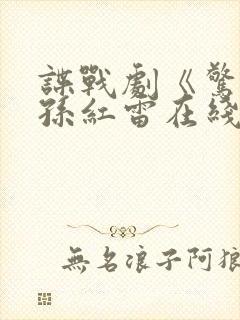 諜戰劇《驚
孫紅雷在綫
無名浪子阿狼